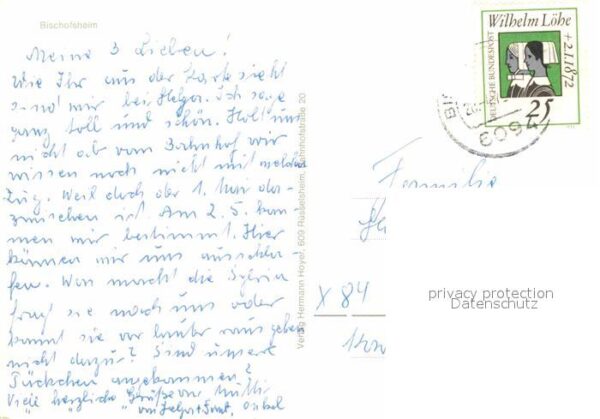 Bischofsheim
Meine 3 Lieben!
Wie Ihr aus der Karte sieht
sind wir bei Helga. Ich sage
ganz toll und schön. Holt uns
nicht ab vom Bahnhof wir
wissen noch nicht mit welchem
Zug. Weil doch der 1. Mai da-
zwischen ist. Am 2.5. kom-
men wir bestimmt. Hier
können wir uns ausschla-
fen. Was macht die Sylvia
fragt sie nach uns oder
kommt sie vor lauter
nicht dazu? Sind unsere
Päckchen angekommen?
Viele herzliche Grüße von Mutti
" " von Helga +
Verlag Hermann Hoyer, 609 Rüsselsheim, Bahnhofstraße 20
Wilhelm Löhe
+2.1.1872
DEUTSCHE BUNDESPOST
25
6094
BI
Familie
X 84
privacy protection
Datenschutz